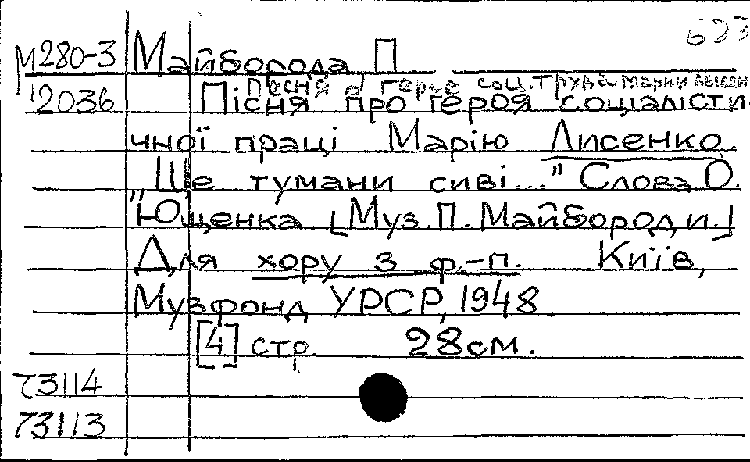 683
М280-3 Майборода П
Песня о герое соц. труда Марии Лысен
12036 Пісня про героя соціалісти-
чної праці Марію Лисенко
"Ще тумани сиві..." Слова О.
Ющенка [Муз. П. Майбороди.]
Для хору з ф.-п. Київ,
Музфонд УРСР, 1948
[4] стр. 28см.
73114
73113